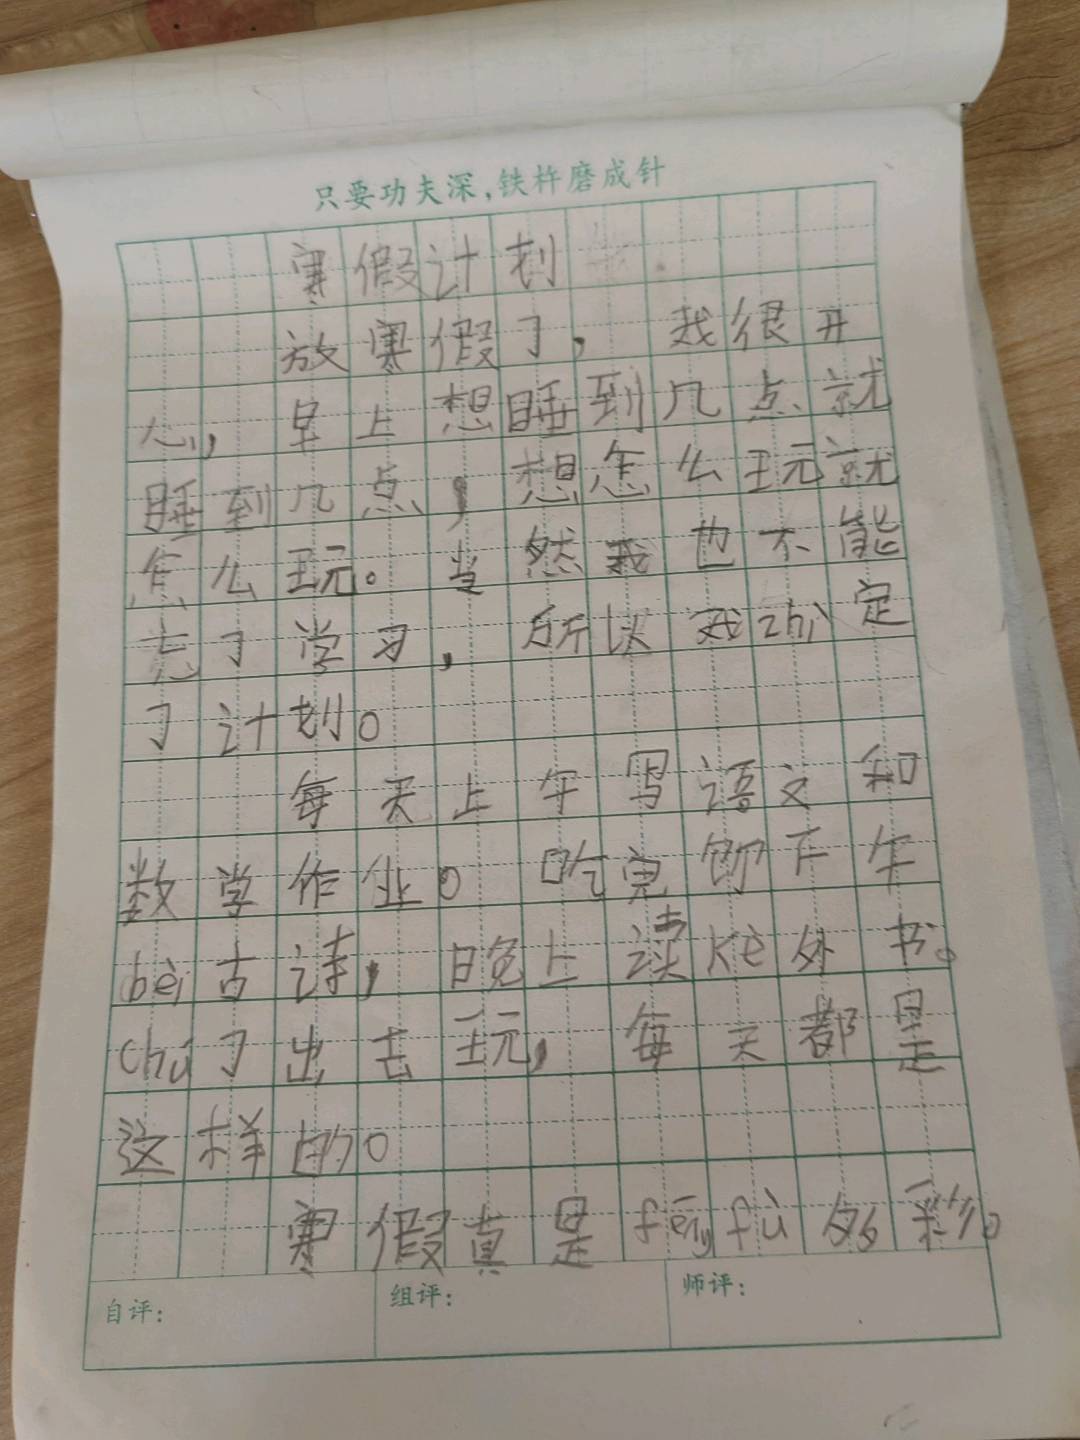 只要功夫深,铁杵磨成针
寒假计划
放寒假了,我很开
心,早上想睡到几点就
睡到几点,想怎么玩就
怎么玩。当然我也不能
忘了学习,所以我zhì定
了计划。
每天上午写语文和
数学作业。吃完饭下午
bèi古诗,晚上读kè外书。
chú了出去玩,每天都是
这样的。
寒假真是fēngfù多彩。
自评:
组评:
师评: